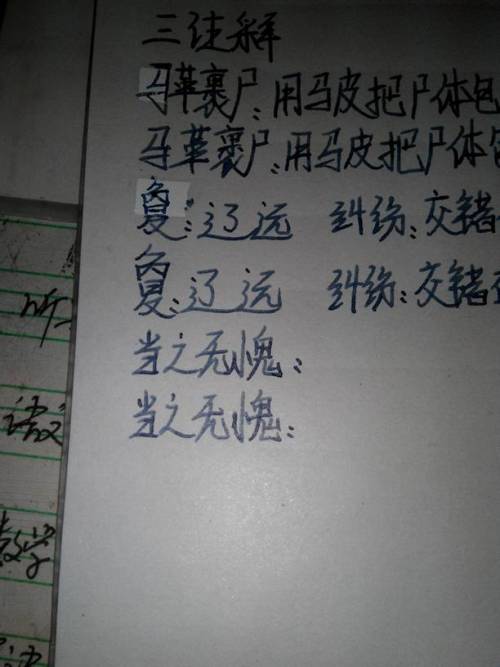 三注释
马革裹尸:用马皮把尸体包
马革裹尸:用马皮把尸体包
敻:辽远 纠纷:交错
敻:辽远 纠纷:交错
当之无愧:
当之无愧:
听
语文
数学